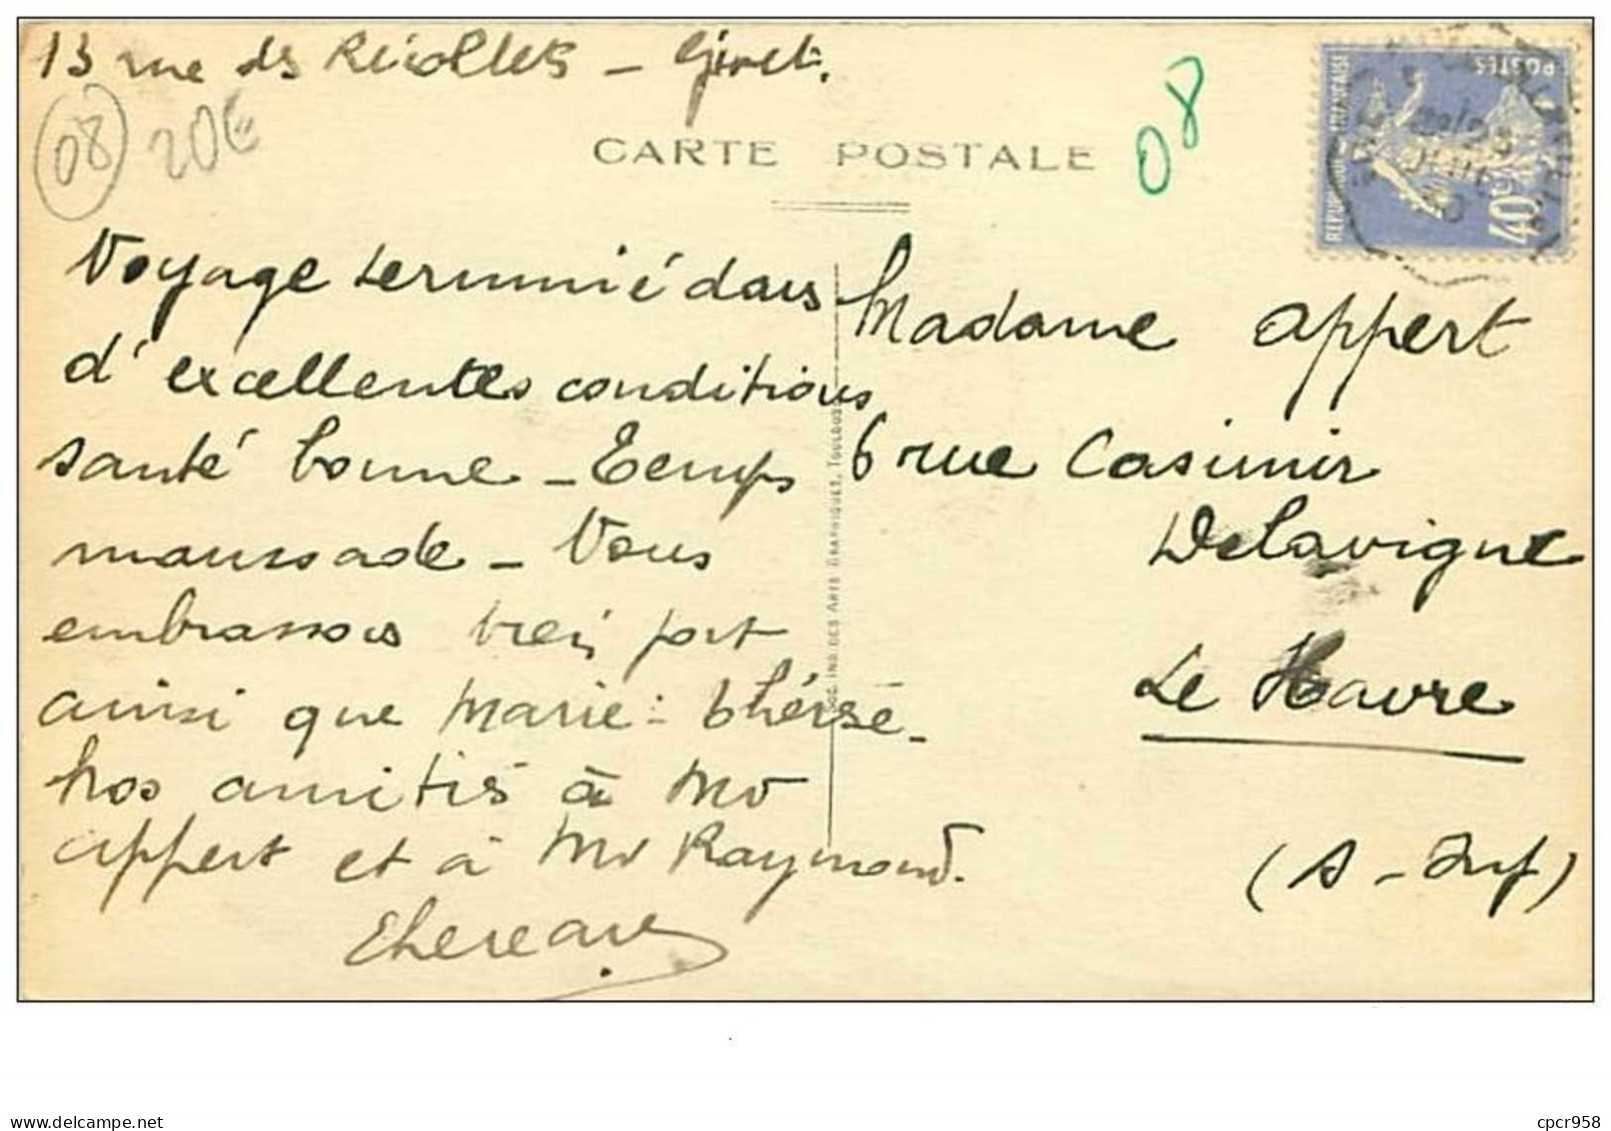 13 rue des Récollets - Givet.
08
20€
CARTE POSTALE
08
POSTES
40c
Voyage terminé dans
d'excellentes conditions
santé bonne - Temps
maussade - Vous
embrassons bien fort
ainsi que Marie-Thérèse -
Nos amitiés à Mr
Appert et à Mr Raymond.
SOC. IND. DES ARTS GRAPHIQUES, TOULOUSE
Madame Appert
6 rue Casimir
Delavigne
Le Havre
(S - Inf)
cpcr958